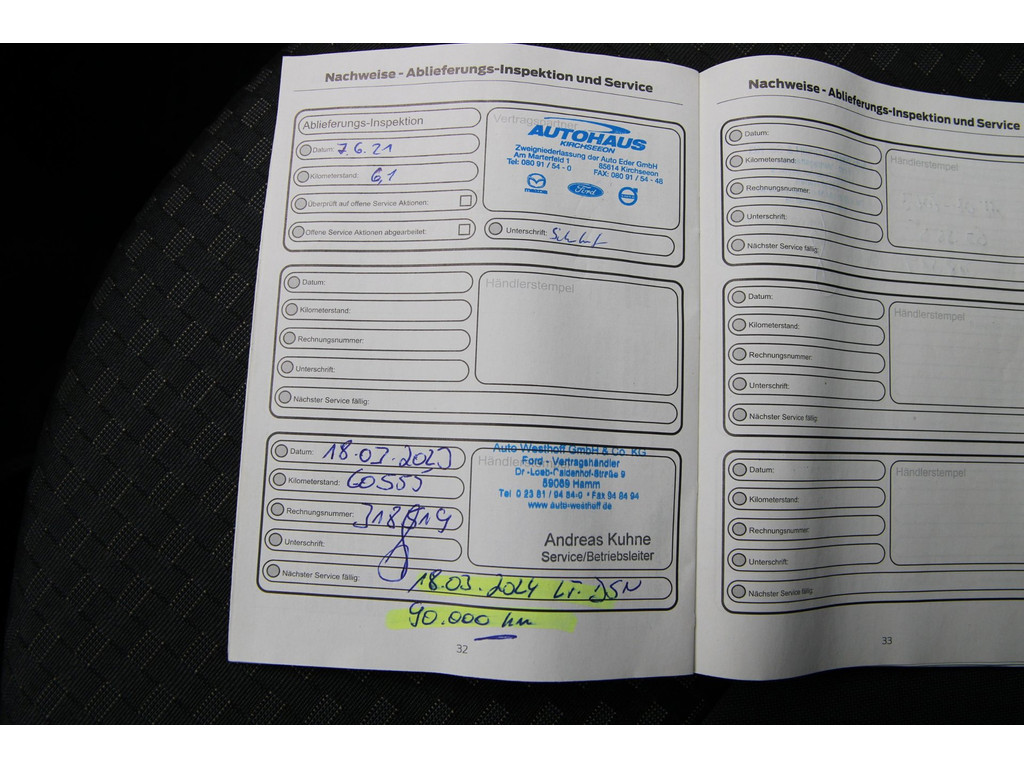 Nachweise - Ablieferungs-Inspektion und Service
Ablieferungs-Inspektion
Datum: 7.6.21
Kilometerstand: 6,1
Überprüft auf offene Service Aktionen:
Offene Service Aktionen abgearbeitet:
Vertragspartner
AUTOHAUS
KIRCHSEEON
Zweigniederlassung der Auto Eder GmbH
Am Marterfeld 1 85614 Kirchseeon
Tel: 080 91 / 54 - 0 FAX: 080 91 / 54 - 48
mazda Ford
Unterschrift:
Datum:
Kilometerstand:
Rechnungsnummer:
Unterschrift:
Nächster Service fällig:
Händlerstempel
Datum: 18.03.2023
Kilometerstand: 60555
Rechnungsnummer: 318819
Unterschrift:
Nächster Service fällig: 18.03.2024 LT. DSN
90.000 km
Auto Westhoff GmbH & Co. KG
Ford - Vertragshändler
Dr.-Loeb-Caldenhof-Straße 9
59069 Hamm
Tel 0 23 81 / 94 84-0 * Fax 94 84 94
www.auto-westhoff.de
Andreas Kuhne
Service/Betriebsleiter
32
Nachweise - Ablieferungs-Inspektion und Service
Datum:
Kilometerstand:
Rechnungsnummer
Unterschrift:
Nächster Service fällig:
Händlerstempel
Datum:
Kilometerstand:
Rechnungsnummer:
Unterschrift:
Nächster Service fällig:
Händlerstempel
Datum:
Kilometerstand:
Rechnungsnummer:
Unterschrift:
Nächster Service fällig:
Händlerstempel
33